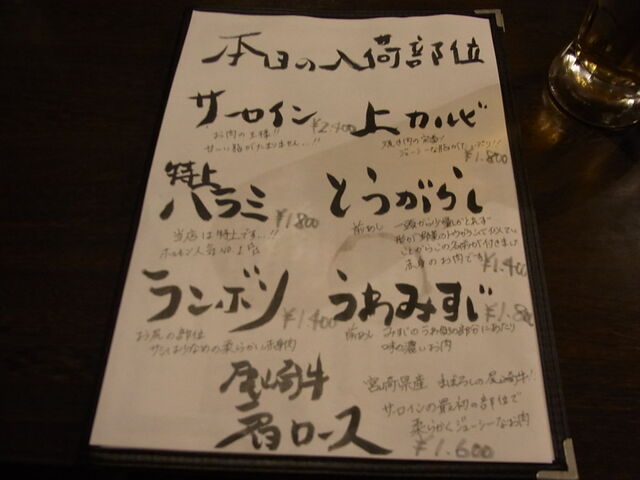 本日の入荷部位
サーロイン
お肉の王様!!
サーシ脂がたまりません...!!
¥2.400
上カルビ
焼き肉の定番!
ジューシーな脂がたっぷり!!
¥1.800
特上
ハラミ
¥1800
当店は特上です...!!
ホルモン人気NO.1!
とうがらし
前あし
一頭から少量しかとれず
形が野菜のトウガラシに似てい
ことからこの名前が付きまし
赤身のお肉です
¥1.400
ランボソ
¥1.400
お尻の部位
サシはひかえめの柔らかい赤身肉
うわみすじ
¥1.80
前あし みすじのうわ側の部分にあたり
味の濃いお肉
尾崎牛
肩ロース
宮崎県産 まぼろしの尾崎牛!!
サーロインの最初の部位で
柔らかくジューシーなお肉
¥1.600